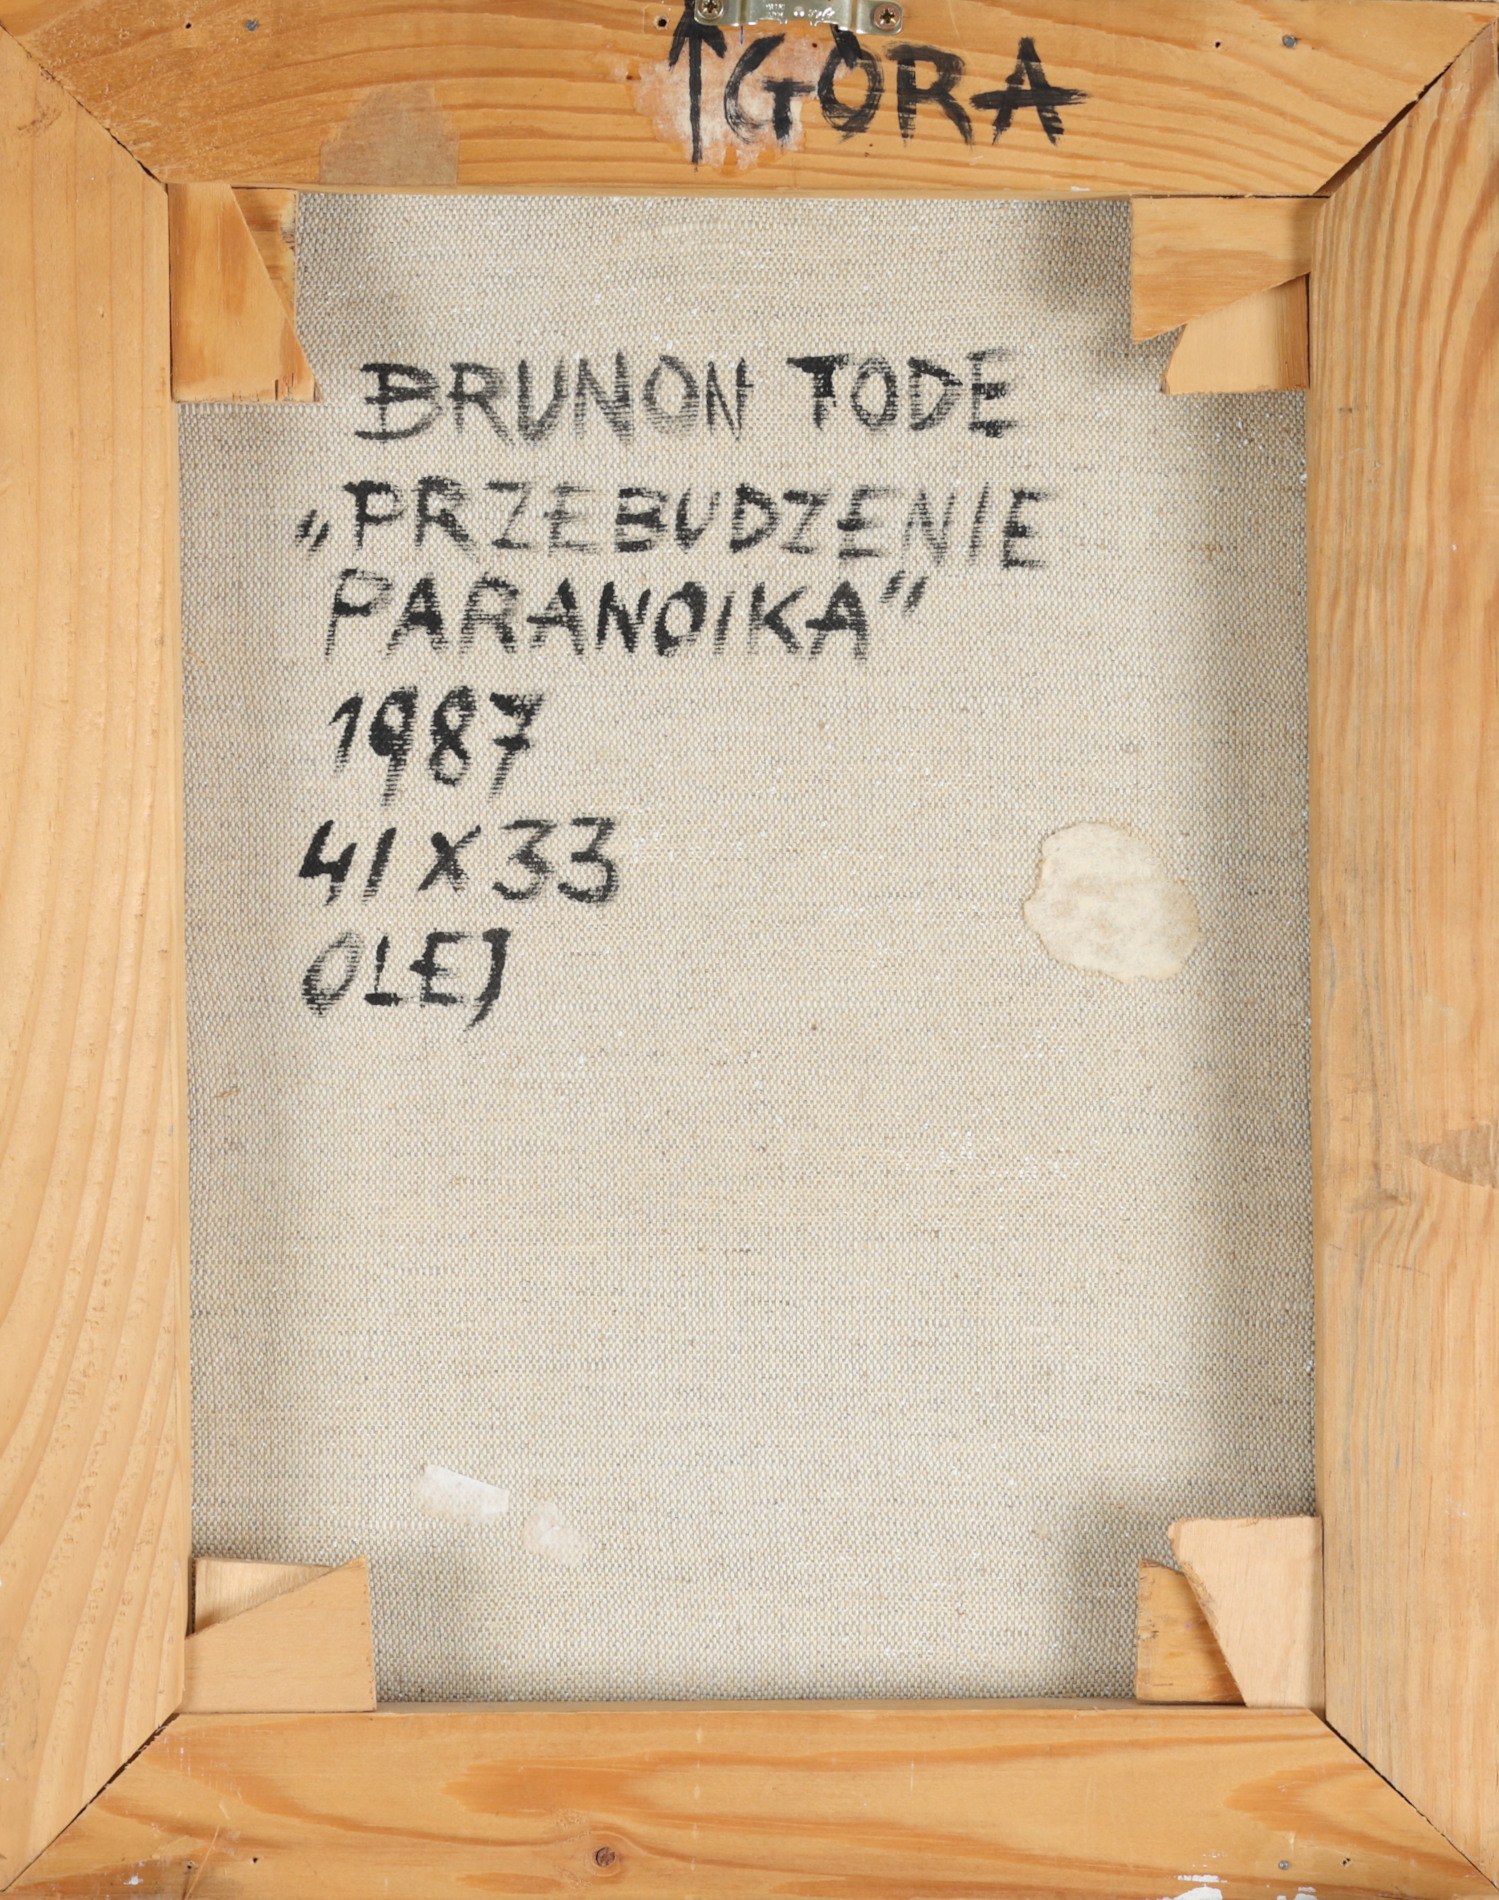 ↑GÓRA
BRUNON TODE
„PRZEBUDZENIE
PARANOIKA”
1987
41 X 33
OLEJ